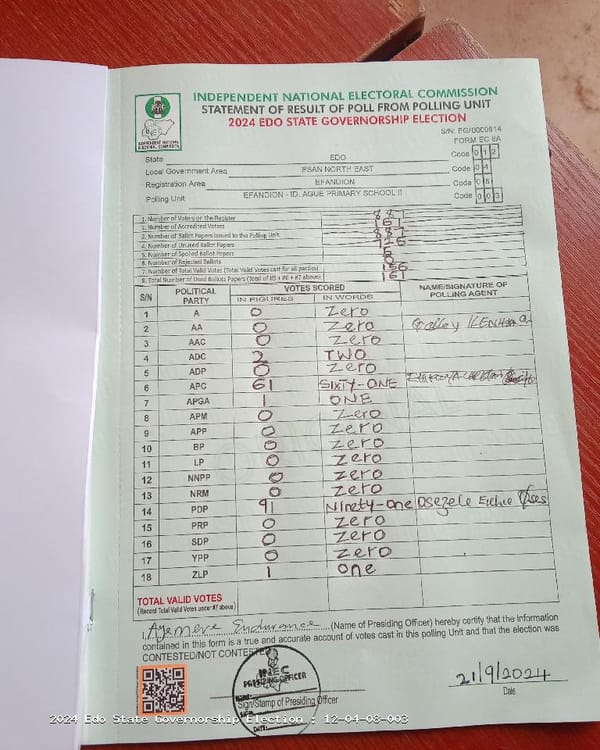 INDEPENDENT NATIONAL ELECTORAL COMMISSION
STATEMENT OF RESULT OF POLL FROM POLLING UNIT
2024 EDO STATE GOVERNORSHIP ELECTION
INDEPENDENT NATIONAL ELECTORAL COMMISSION
S/N: EG/0000814
FORM EC 8A
State EDO Code 0 1 2
Local Government Area ESAN NORTH EAST Code 0 4
Registration Area EFANDION Code 0 8
Polling Unit EFANDION - ID. AGUE PRIMARY SCHOOL II Code 0 0 3
1. Number of Voters on the Register 887
2. Number of Accredited Voters 161
3. Number of Ballot Papers Issued to the Polling Unit 887
4. Number of Unused Ballot Papers 726
5. Number of Spoiled Ballot Papers 5
6. Number of Rejected Ballots 0
7. Number of Total Valid Votes (Total Valid Votes cast for all parties) 156
8. Total Number of Used Ballots Papers (Total of #5 + #6 + #7 above) 161
S/N POLITICAL PARTY VOTES SCORED NAME/SIGNATURE OF POLLING AGENT
IN FIGURES IN WORDS
1 A 0 Zero
2 AA 0 Zero
3 AAC 0 Zero
4 ADC 2 TWO
5 ADP 0 Zero
6 APC 61 SIXTY-ONE
7 APGA 1 ONE
8 APM 0 Zero
9 APP 0 Zero
10 BP 0 Zero
11 LP 0 Zero
12 NNPP 0 Zero
13 NRM 0 Zero
14 PDP 91 Ninety-one Osezele
15 PRP 0 Zero
16 SDP 0 Zero
17 YPP 0 Zero
18 ZLP 1 one
TOTAL VALID VOTES
(Record Total Valid Votes under #7 above)
I, Ayemere Endurance (Name of Presiding Officer) hereby certify that the information
contained in this form is a true and accurate account of votes cast in this polling Unit and that the election was
CONTESTED/NOT CONTESTED
INEC
PRESIDING OFFICER
Sign/Stamp of Presiding Officer
21/9/2024
Date
2024 Edo State Governorship Election : 12-04-08-003